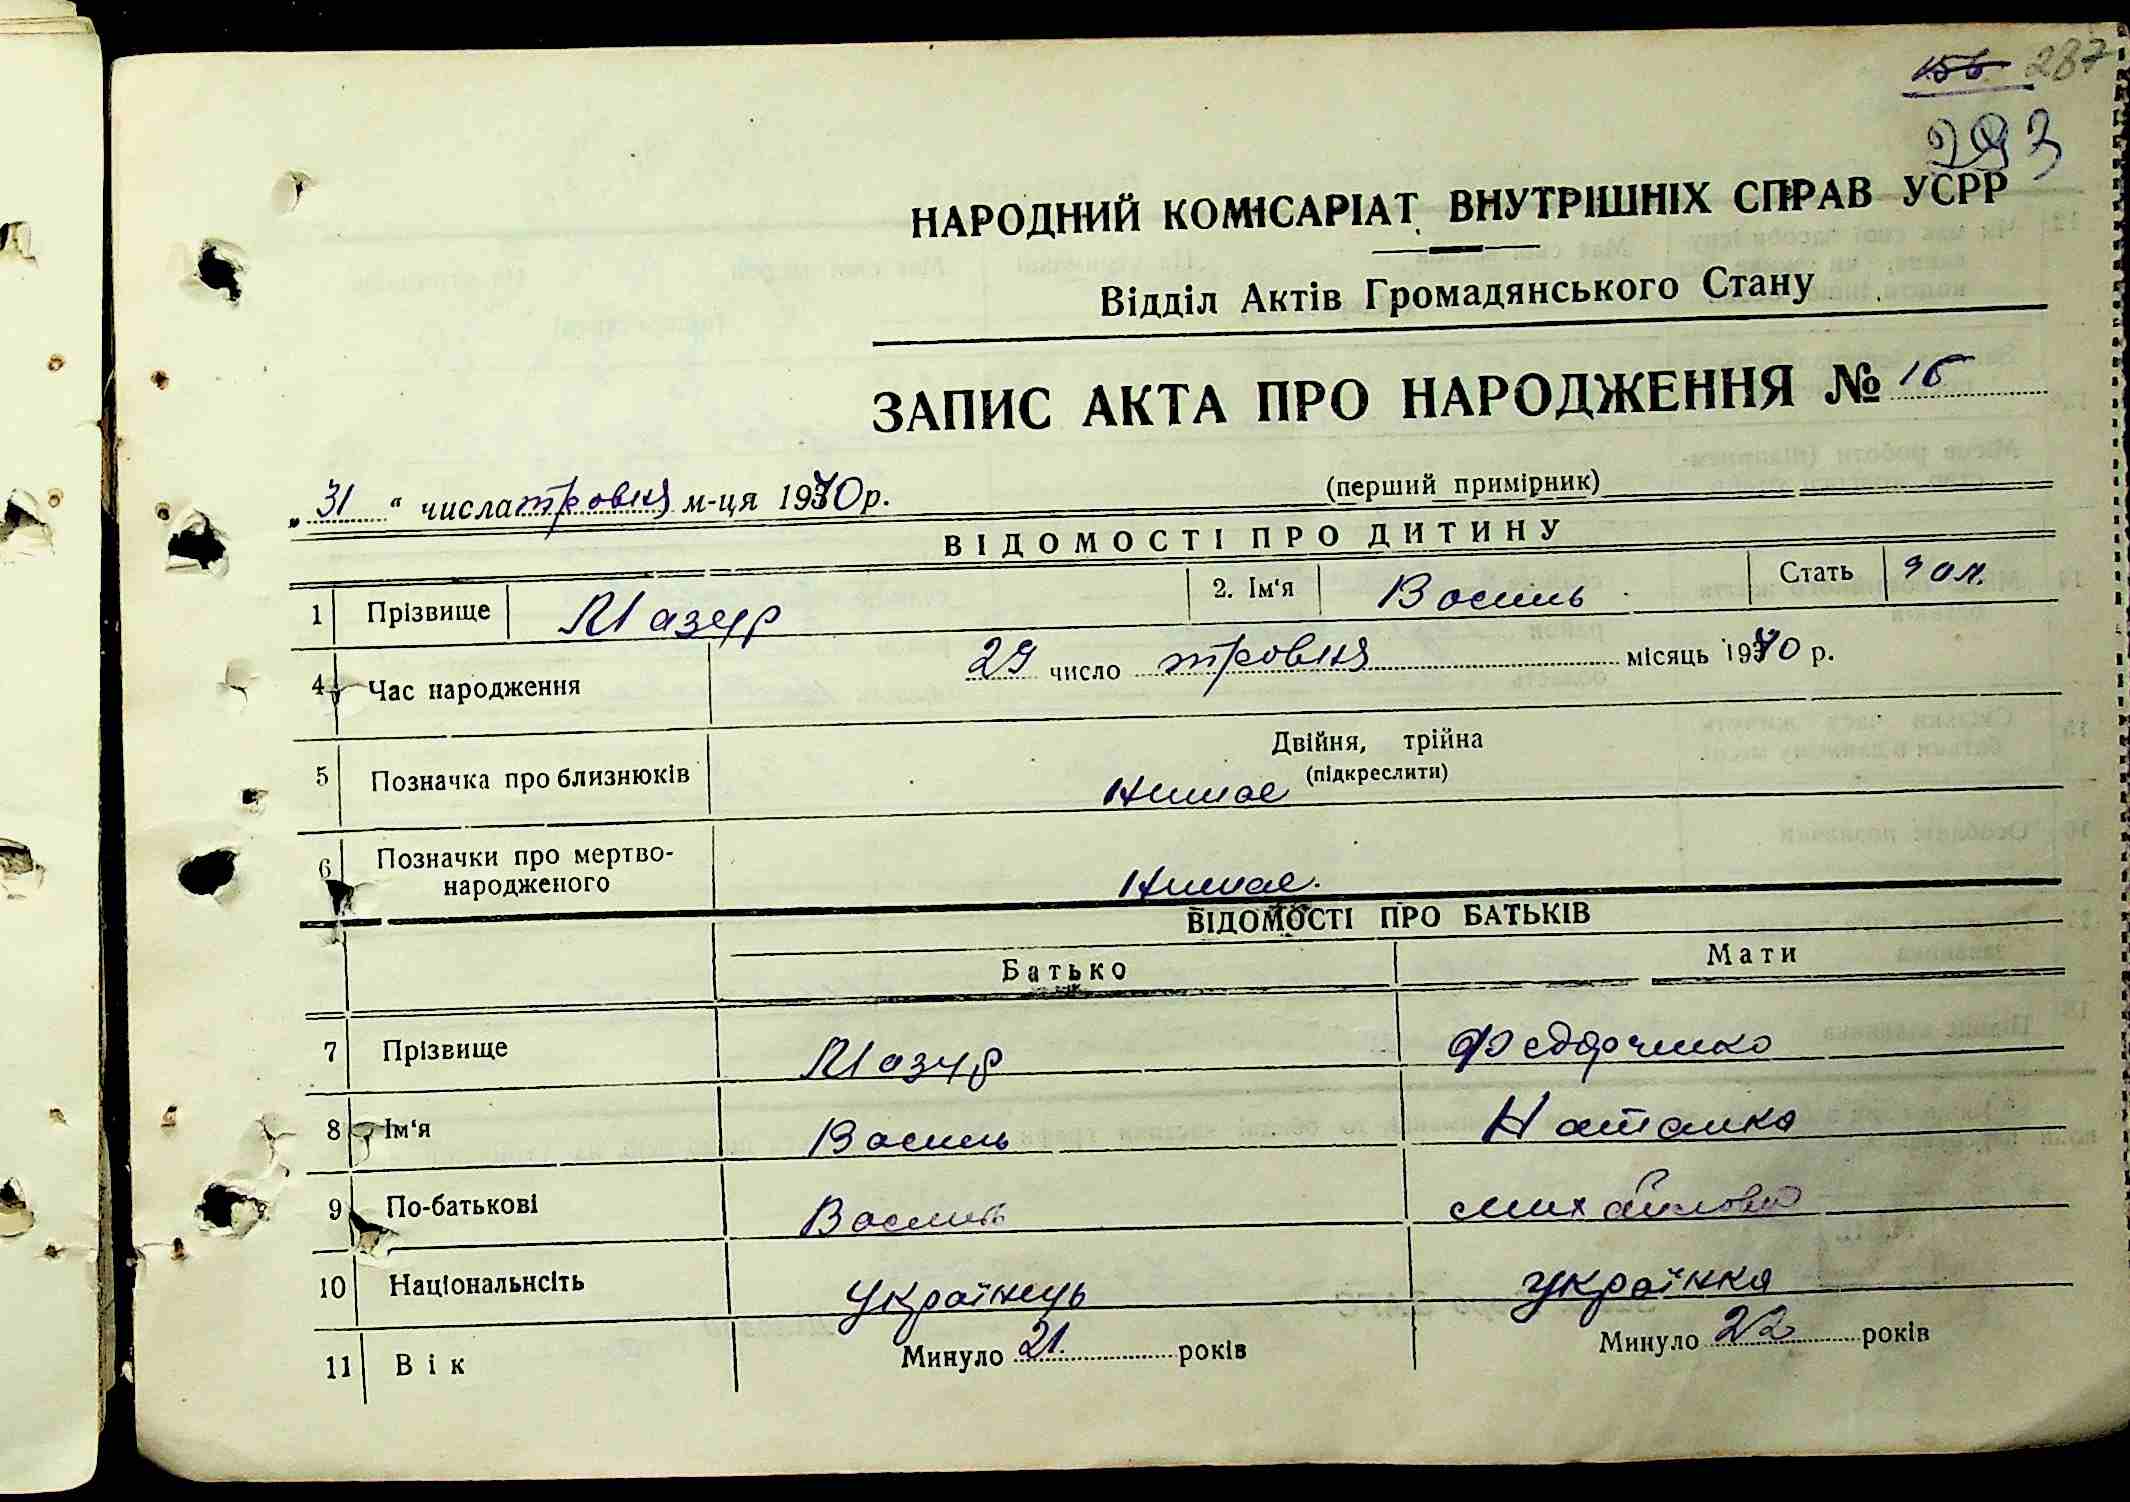 156 287
293
НАРОДНИЙ КОМІСАРІАТ ВНУТРІШНІХ СПРАВ УСРР
Відділ Актів Громадянського Стану
ЗАПИС АКТА ПРО НАРОДЖЕННЯ № 16
„31“ числа травня м-ця 1940 р. (перший примірник)
ВІДОМОСТІ ПРО ДИТИНУ
1 Прізвище Мазур 2. Ім'я Василь Стать чол.
4 Час народження 29 число травня місяць 1940 р.
Двійня, трійна
5 Позначка про близнюків (підкреслити)
Немає
6 Позначки про мертво-
народженого Немає.
ВІДОМОСТІ ПРО БАТЬКІВ
Батько Мати
7 Прізвище Мазур Федорченко
8 Ім'я Василь Наталка
9 По-батькові Василів Михайловна
10 Національнсіть Українець Українка
11 Вік Минуло 21. років Минуло 22 років